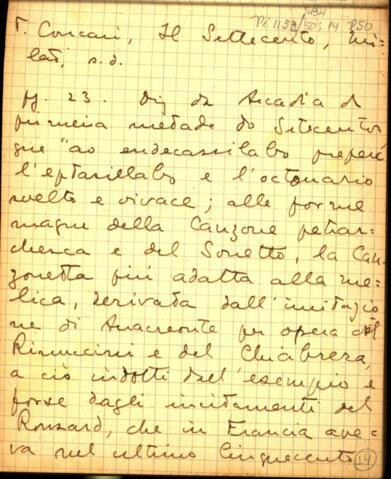 SBH
Pi 1158/50; 14 P50
T. Concari, Il Settecento, Mi-
lat, s.d.
pg. 23. Diz da Arcadia da
primeira metade do Setecento
que "ao endecassilabo preferì
l'eptasillabo e l'octonario
svelto e vivace; alle forme
magne della Canzone petrar-
chesca e del Sonetto, la Can-
zonetta più adatta alla me-
lica, derivata dall'imitazio
ne di Anacreonte per opera del
Rinuccini e del Chiabrera,
a ciò indotti dall'esempio e
forse dagli incitamenti del
Ronsard, che in Francia ave-
va nel ultimo Cinquecento
14